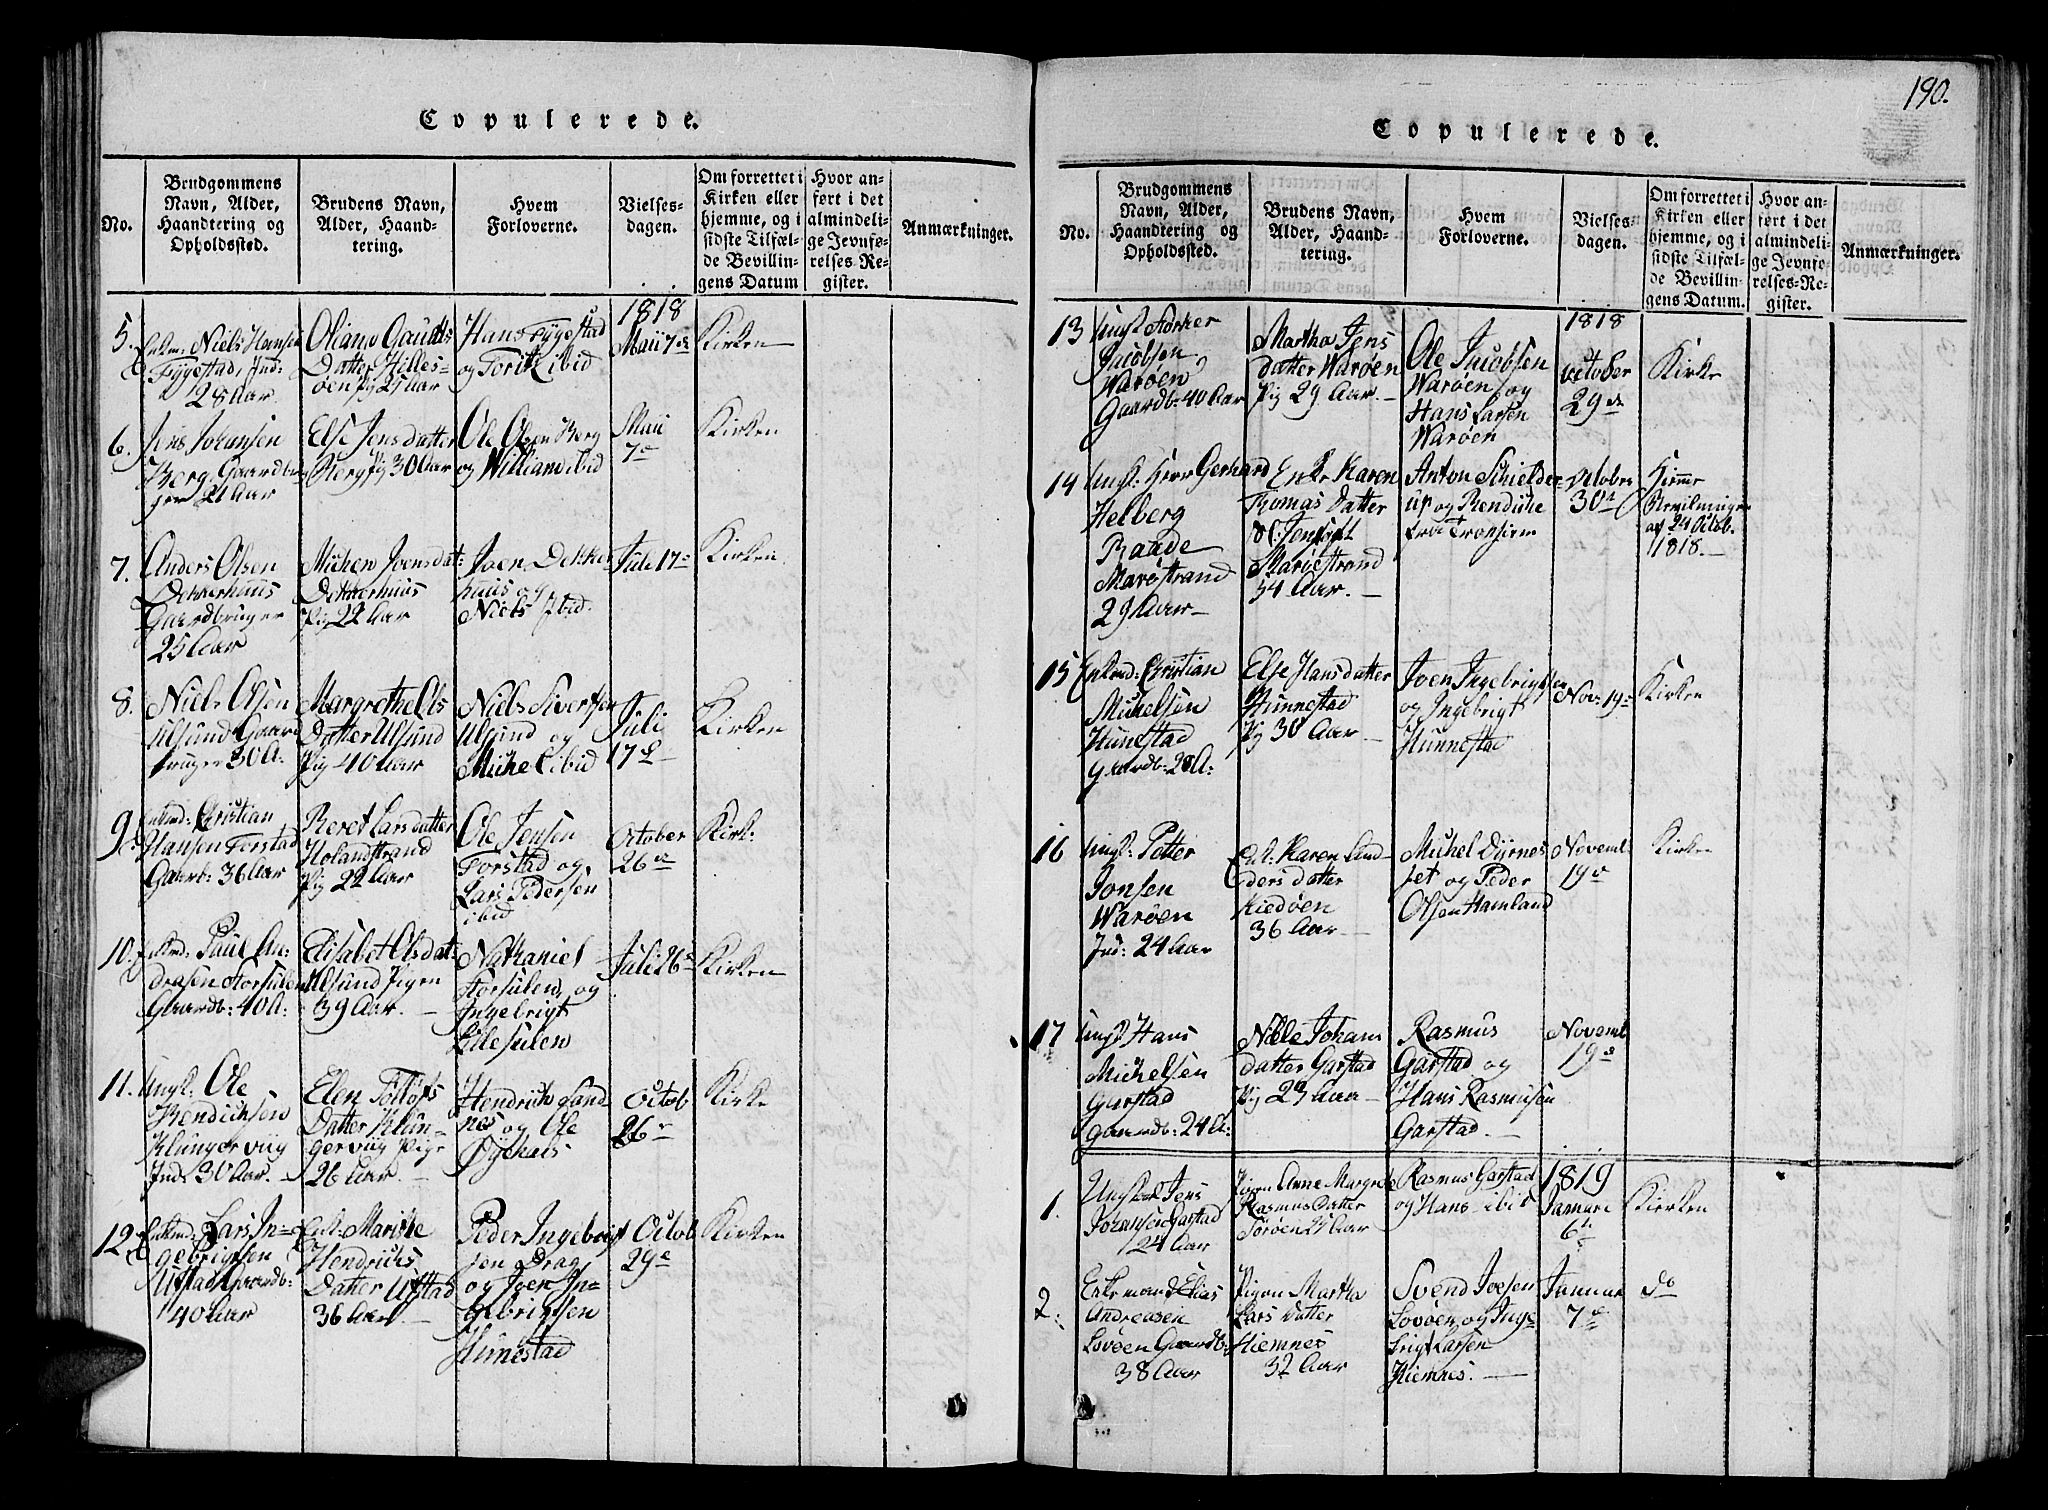 190.
Copulerede.
No.
Brudgommens
Navn, Alder,
Haandtering og
Opholdssted.
Brudens Navn,
Alder, Haand-
tering.
Hvem
Forloverne.
Vielses-
dagen.
Om forrettet i
Kirken eller
hjemme, og i
sidste Tilfæl-
de Bevillin-
gens Datum
Hvor an-
ført i det
almindeli-
ge Jevnfø-
relses-Re-
gister.
Anmærkninger.
1818
5.
Enkm: Niels Hansen
Fygestad, Ind:
28 Aar.
Oliana
Datter Hilles-
øen Pig 21 Aar
Hans Fygestad
og ibid
Maii 7de
Kirken
6.
Jens Johansen
Berg, Gaardbru-
ger 21 Aar
Else Jensdatter
Berg Pig 30 Aar
Ole Olsen Berg
og William ibid
Maii
7de
Kirken
7.
Anders Olsen
Dekkerhuus
Gaardbruger
25 Aar
Michen Joensdat:
Dekkerhuus
Pig 22 Aar
Joen Dekker
huus og
Niels Ibid.
Juli 17de
Kirken
8.
Niels Olsen
Ulsund Gaard
bruger 30 A.
Margrethe Ols
Datter Ulsund
Pig 40 Aar
Niels Sivertsen
Ulsund og
Michel ibid
Juli
17de
Kirken
9.
Enkmd: Christian
Hansen Forstad
Gaardb: 36 Aar
Beret Larsdatter
Holandstrand
Pig 22 Aar
Ole Jensen
Forstad og
Lars Pedersen
ibid
October
26de
Kirk:
10.
Enkmd: Paul An-
drasen Storsulen
Gaardb: 40 A:
Elisabet Olsdat:
Ulsund Pigen
39 Aar.
Nathaniel
Storsulen, og
Ingebrigt
Lilesulen
Juli 26de
Kirken
11.
Ungk: Ole
Bendichsen
Klungerviig
Ind: 30 Aar.
Elen Tollofs
Datter Klun-
gerviig Pige
26 Aar.
Hendrich Sand-
nes og Ole
Øyehals
Octob
26de
Kirke
12.
Enkmd: Lars In-
gebrigtsen
Ulstad Gaardb:
40 Aar
Enk: Marithe
Hendrichs
Datter Ulstad
36 Aar.
Peder Ingebrigt
sen Drag
og Joen In-
gebrigtsen
Hunestad
Octob
29de
Kirken
Copulerede.
No.
Brudgommens
Navn, Alder,
Haandtering og
Opholdssted.
Brudens Navn,
Alder, Haand-
tering.
Hvem
Forloverne.
Vielses-
dagen.
Om forrettet i
Kirken eller
hjemme, og i
sidste Tilfæl-
de Bevillin-
gens Datum.
Hvor an-
ført i det
almindeli-
ge Jevnfø-
relses-Re-
gister.
Anmærkninger.
1818
13
Ungk
Jacobsen
Warøen
Gaardb: 40 Aar
Martha Jens
datter Warøen
Pig 29 Aar.
Ole Jacobsen
Warøen og
Hans Larsen
Warøen
October
29de
Kirke
14
Ungk: Herr Gerhard
Helberg
Baade
Marøstrand
29 Aar
Enke Karen
Thomas Datter
Marøestrand
34 Aar.
Anton Schielde-
up og Bendiche
fra Tronhiem
October
30te
Hiemme
af 24 Octob.
1818.
15
Enkmd: Christian
Michelsen
Hunestad
Gaardb: 28 A:
Else Hansdatter
Hunnestad
Pig 30 Aar
Joen Ingebrigtsen
og Ingebrigt
Hunnestad
Nov: 19de
Kirken
16
Ungk: Petter
Jonsen
Warøen
Ind: 24 Aar
Enk: Karen San-
ders datter
Kiedøen
36 Aar
Michel Dyrnes
set og Peder
Olsen Hamland
Novemb:
19de
Kirken
17
Ungk Hans
Michelsen
Garstad
Gaardb: 24 A:
Nille Johans
datter Garstad
Pig 23 Aar
Rasmus
Garstad og
Hans Rasmusen
Garstad.
Novemb
19de
1819
1.
Ungkarl Jens
Johansen Garstad
24 Aar
Pigen Anne Margrete
Rasmus Datter
Sørøen 21 Aar
Rasmus Garstad
og Hans ibid
Januari
6te
Kierken
2.
Enkemand Elias
Andreasen
Lovøen Gaardb:
38 Aar
Pigen Martha
Lars Datter
Hiemnes
32 Aar
Svend Joesen
Lovøen, og Inge-
brigt Larsen
Hiemnes.
Januar
7de
do